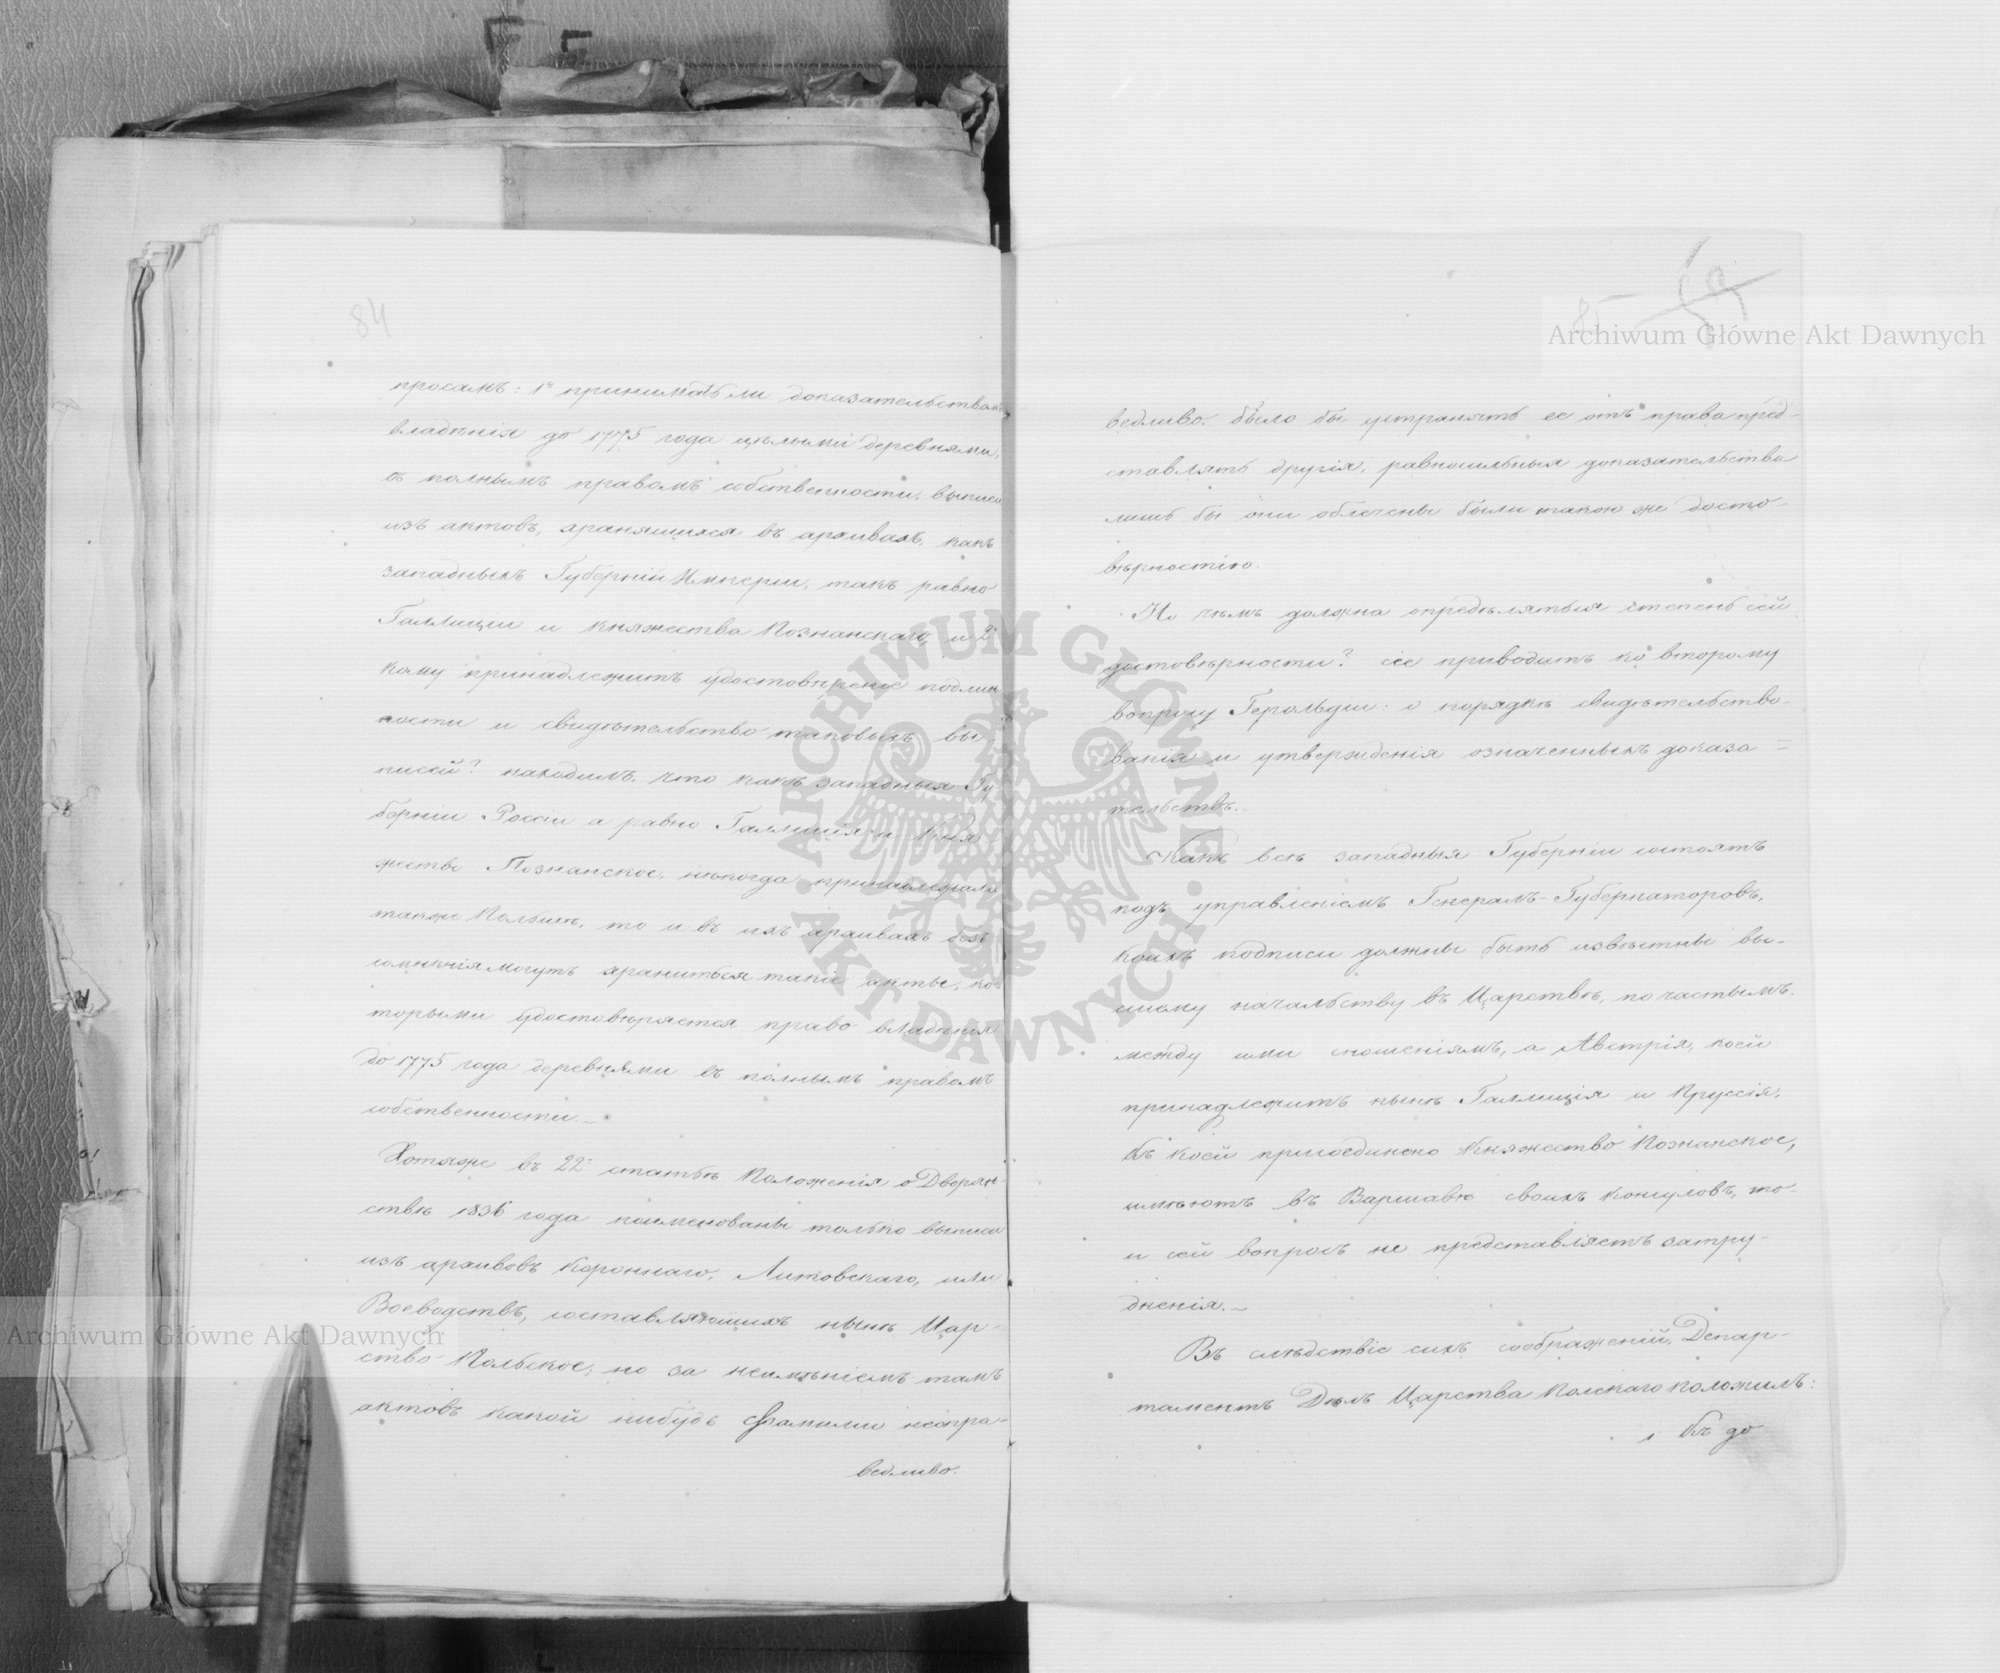 84
просамъ: 1е принимать ли доказательствомъ
владѣнія до 1775 года цѣлыми деревнями,
съ полнымъ правомъ собственности, выписи
изъ актовъ, хранящихся въ архивахъ, какъ
западныхъ Губерній Имперіи, такъ равно
Галлиціи и Княжества Познанскаго, и 2е
кому принадлежитъ удостовѣреніе подлин
ности и свидѣтельство таковыхъ вы
писей? находилъ, что какъ западныя Гу
берніи Россіи а равно Галлиція и Кня
жество Познанское, нѣкогда принадлежали
также Польшѣ, то и въ ихъ архивахъ безъ
сомнѣнія могутъ храниться такіе акты, ко
торыми удостовѣряется право владѣнія
до 1775 года деревнями съ полнымъ правомъ
собственности.
Хотя же въ 22й статьѣ Положенія о Дворян
ствѣ 1836 года поименованы только выписи
изъ архивовъ Короннаго, Литовскаго, или
Воеводствъ, составляющихъ нынѣ Цар-
ство Польское, но за неимѣніемъ тамъ
актовъ какой нибудь фамиліи неспра-
ведливо.
85
ведливо было бы устранять ее отъ права пред-
ставлять другія, равносильныя доказательства
лишь бы они облечены были такою же досто-
вѣрностію.
Но чѣмъ должна опредѣляться степень сей
достовѣрности? сіе приводитъ ко второму
вопросу Герольдіи: о порядкѣ свидѣтельство-
ванія и утвержденія означенныхъ доказа=
тельствъ.
Какъ всѣ западныя Губерніи состоятъ
подъ управленіемъ Генералъ-Губернаторовъ,
коихъ подписи должны быть извѣстны вы-
сшему начальству въ Царствѣ, по частымъ
между ими сношеніямъ, а Австрія, коей
принадлежитъ нынѣ Галлиція и Пруссія,
къ коей присоединено Княжество Познанское,
имѣютъ въ Варшавѣ своихъ Консуловъ, то
и сей вопросъ не представляетъ затру-
дненія.
Въ слѣдствіе сихъ соображеній, Депар-
таментъ Дѣлъ Царства Полскаго положилъ:
Къ до
Archiwum Główne Akt Dawnych
Archiwum Główne Akt Dawnych
ARCHIWUM GŁÓWNE AKT DAWNYCH